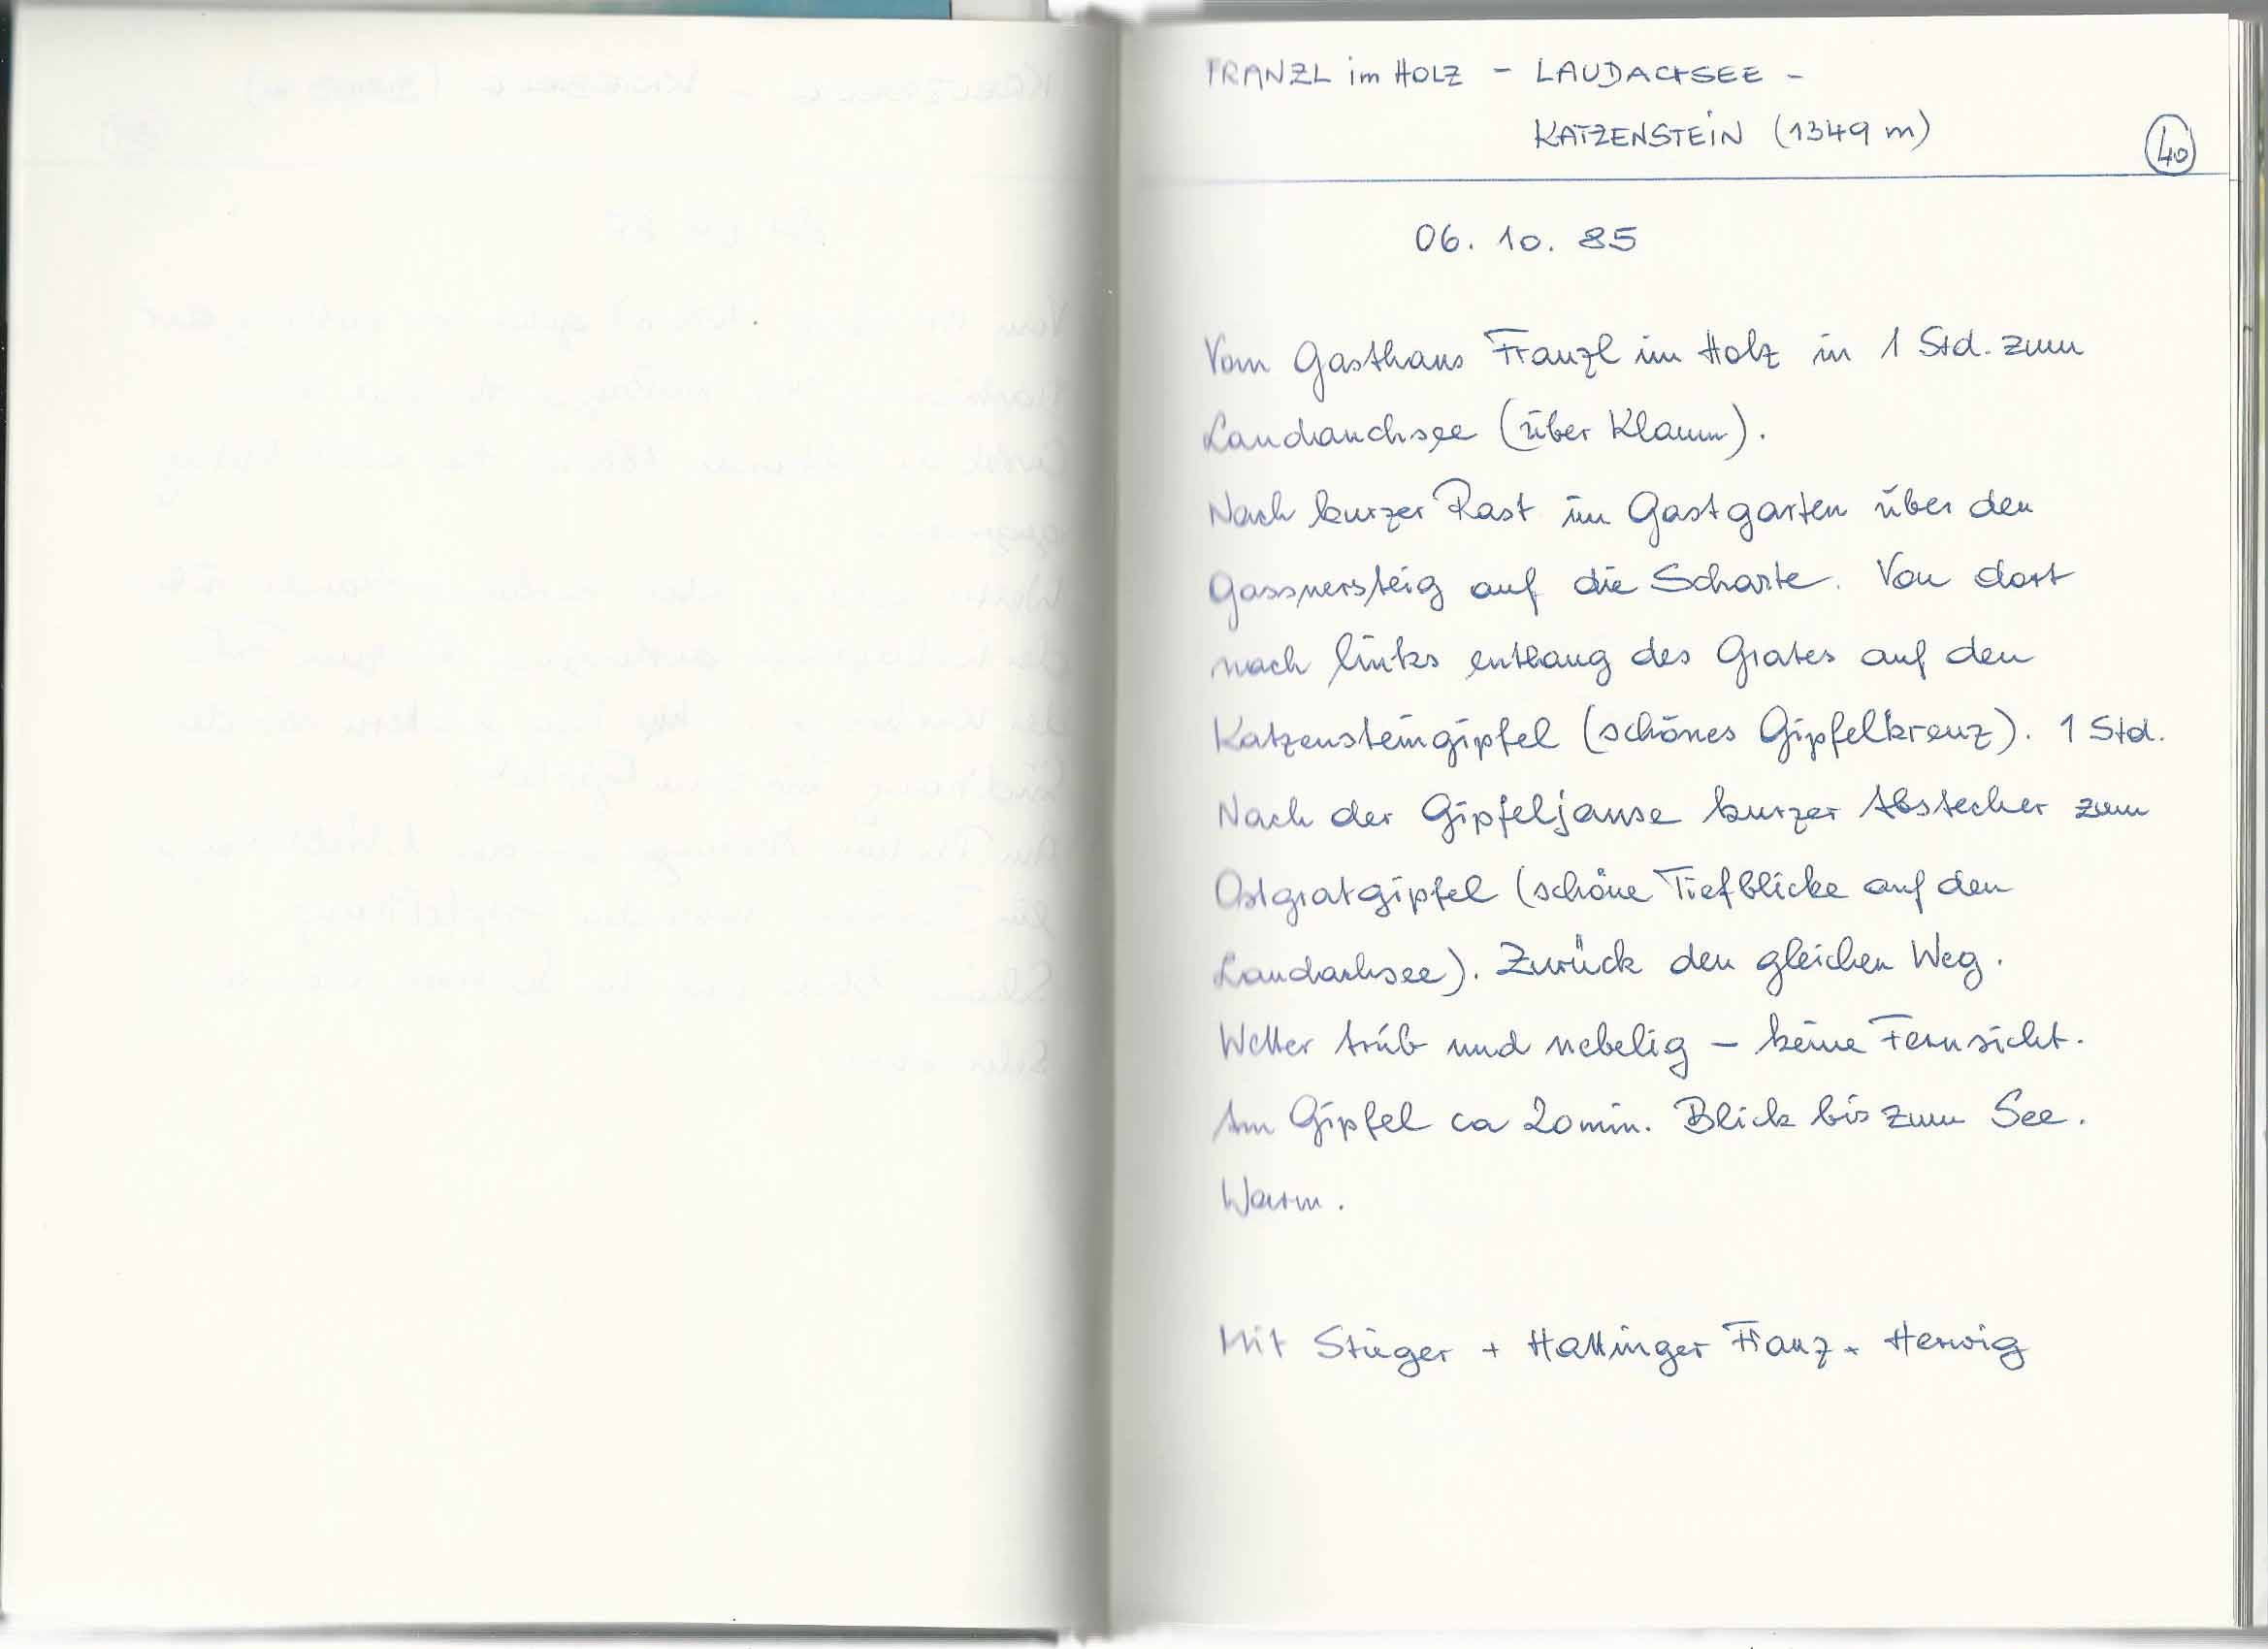 FRANZL im HOLZ - LAUDACHSEE -
KATZENSTEIN (1349 m)
40
06. 10. 85
Vom Gasthaus Franzl im Holz in 1 Std. zum
Laudauchsee (über Klamm).
Nach kurzer Rast im Gastgarten über den
Gassnersteig auf die Scharte. Von dort
nach links entlang des Grates auf den
Katzensteingipfel (schönes Gipfelkreuz). 1 Std.
Nach der Gipfeljause kurzer Abstecher zum
Ostgratgipfel (schöne Tiefblicke auf den
Laudachsee). Zurück den gleichen Weg.
Wetter trüb und nebelig - keine Fernsicht.
Am Gipfel ca 20min. Blick bis zum See.
Warm.
Mit Stieger + Hattinger Franz + Herwig